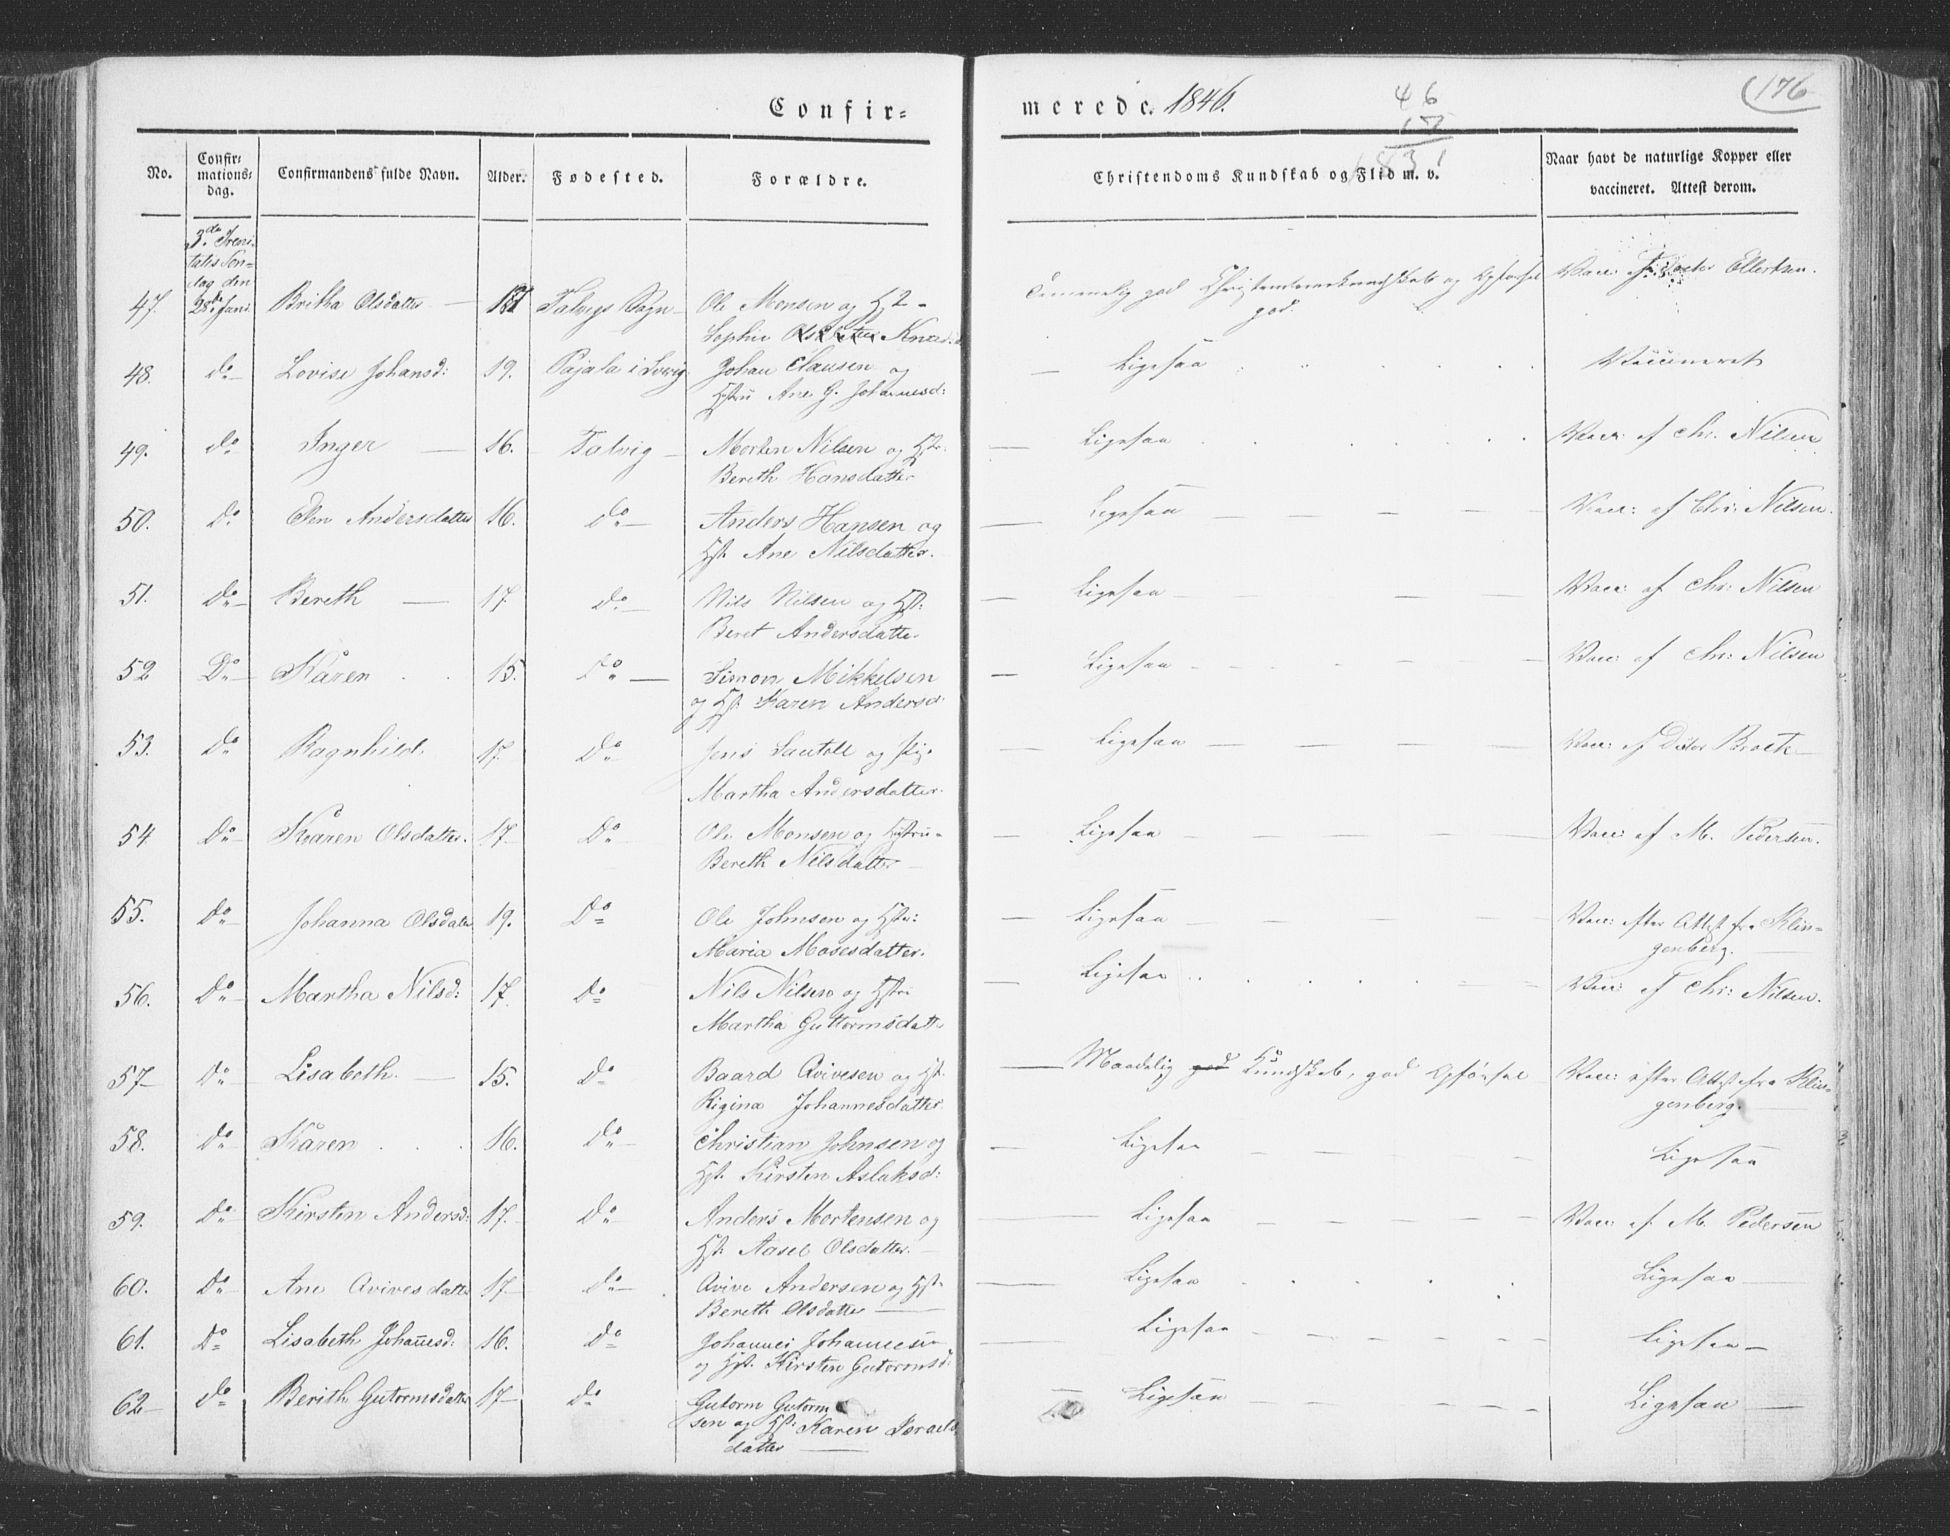 Confir=
merede. 1846.
46
15
1831
176
No.
Confir=
mations=
dag.
Confirmandens fulde Navn.
Alder.
Fødested.
Forældre.
Christendoms Kundskab og Flid m. v.
Naar havt de naturlige Kopper eller
vaccineret. Attest derom.
3de Treni-
tatis Søn=
dag den
28de Juni
47. Britha Olsdatter — Talvigs Sogn — Ole Monsen og H
god Christendomskundskab og Opførsel Vacc: Ellertsen.
god.
Sophie Olsdatter
48. do Lovise Johansd: 19. Pajala i Sverig Johan Clausen og — Ligesaa Vaccineret
Hstru Ane G. Johannesd:
49. do Inger — 16. Talvig — Morten Nilsen og Hstr. — Ligesaa Vacc: af Chr. Nilsen
Bereth Hansdatter
50. Do Elen Andersdatter 16. Do — Anders Hansen og — Ligesaa — Vacc: af Chr: Nilsen.
Hst. Ane Nilsdatter.
51. Do Bereth — 17. Do — Nils Nilsen og Hst: — Ligesaa — Vacc: af Chr: Nilsen
Beret Andersdatter.
52 Do Karen 15. Do — Simon Mikkelsen — Ligesaa — Vacc: af Chr: Nilsen
og Hst. Karen Andersd.
53. Do Ragnhild. 17. Do Jens og Pige — Ligesaa — Vacc: af Doctor
Martha Andersdatter.
54. Do Karen Olsdatter. 17. Do Ole Monsen og Hstru — Ligesaa — Vacc: af M. Pedersen.
Bereth Nilsdatter —
55. Do Johanna Olsdatter 19. Do Ole Johnsen og Hstr: — Ligesaa — Vacc: efter Attest fra Klin-
Maria Mosesdatter. genberg. —
56. Do Martha Nilsd: 17. Do Nils Nilsen og Hstr: — Ligesaa Vacc: af Chr: Nilsen.
Martha Guttormsdatter
57 Do Lisabeth. — 15. Do Baard Avivesen og Hst. — Maadelig god Kundskab, god Opførsel Vacc: efter Attest fra Klin-
Rigina Johannesdatter genberg. —
58. Do Karen 16. Do Christian Johnsen og — Ligesaa — Ligesaa
Hst. Kirsten Aslaksd:
59. Do Kirsten Andersd: 17. Do Anders Mortensen og — Ligesaa — Vacc: af M. Pedersen
Hst: Aasel Olsdatter. —
60. Do Ane Avivesdatter 17 Do Avive Andersen og Hst — Ligesaa Ligesaa —
Bereth Olsdatter —
61. Do Lisabeth Johannesd: 16. Do Johannes Johannesen — Ligesaa Ligesaa —
og Hst. Kirsten Gutormsd:
62 do Berith Gutormsdatter 17 do Gutorm Gutorm — Ligesaa — Ligesaa —
sen og Hst: Karen Israels
datter —